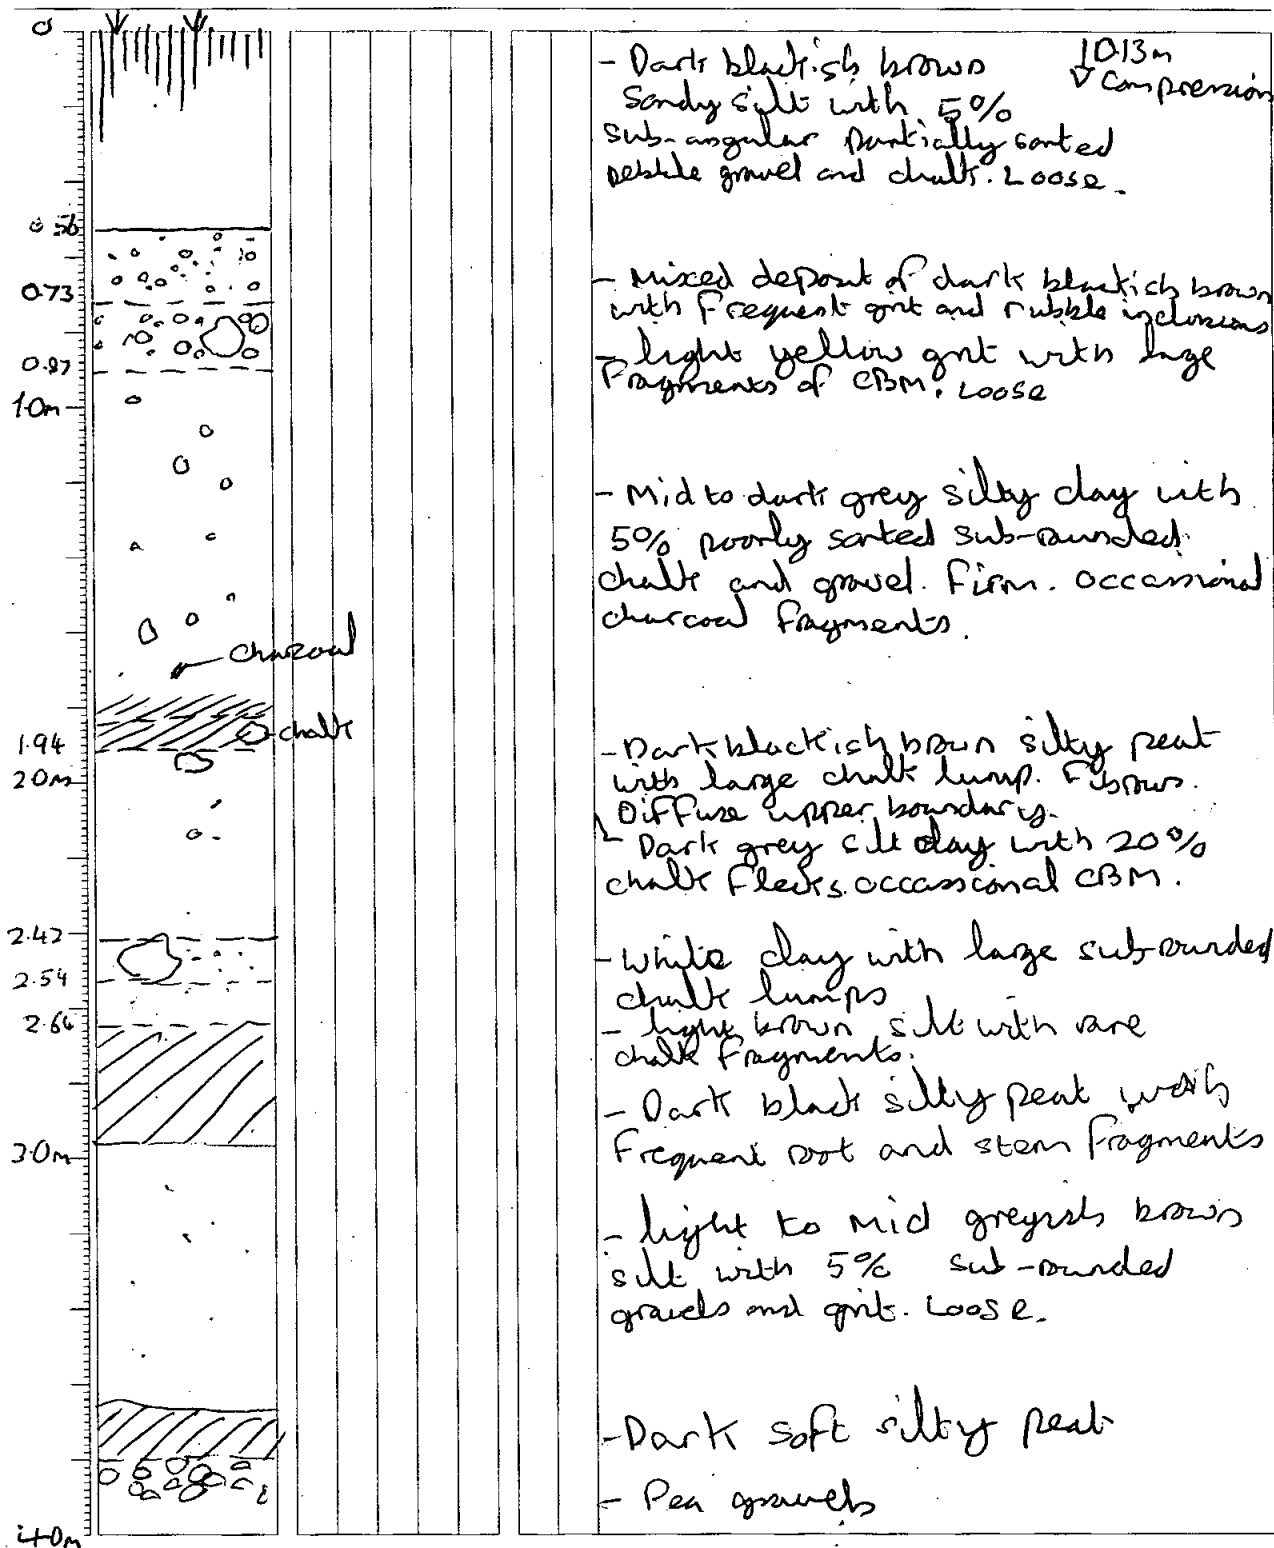 0
0.13m
Compression
- Dark blackish brown
Sandy silt with 5%
sub-angular partially sorted
pebble gravel and chalk. Loose.
0.56
- Mixed deposit of dark blackish brown
with frequent grit and rubble inclusions
0.73
- light yellow grit with large
fragments of CBM. Loose
0.87
1.0m
- Mid to dark grey silty clay with
5% poorly sorted sub-rounded
chalk and gravel. Firm. occassional
charcoal fragments.
charcoal
chalk
1.94
- Dark blackish brown silty peat
with large chalk lump. Fibrous.
Diffuse upper boundary.
2.0m
- Dark grey silt clay with 20%
chalk flecks. occassional CBM.
2.42
- White clay with large sub-rounded
chalk lumps
2.54
- light brown silt with rare
chalk fragments.
2.64
- Dark black silty peat with
frequent root and stem fragments
3.0m
- light to mid greyish brown
silt with 5% sub-rounded
gravels and grit. Loose.
- Dark soft silty peat
- Pea gravels
4.0m